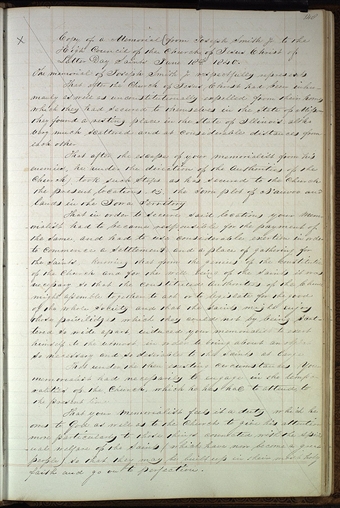 Copy of a Memorial from Joseph Smith Jr to the
High Council of the Church of Jesus Christ of
Latter Day Saints June 18th 1840.
The memorial of Joseph Smith Jr respectfully represents
That after the Church of Jesus Christ had been inhu-
manly as well as unconstitutionally expelled from their homes
which they had secured to themselves in the state of
they found a resting place in the state of Illinois, altho
they much scattered and at considerable distances from
each other
That after the escape of your memorialist from his
enemies, he under the direction of the Authorities of the
Church, took such steps as has secured to the Church
the present locations, viz, the town plot of Nauvoo and
lands in the Iowa Territory
That in order to secure said locations your Mem-
orialist had to become responsible for the payment of
the same, and had to use considerable exertion in order
to commence a settlement, and a place of gathering for
the Saints. Knowing that from the of the
of the Church and for the well being of the Saints it was
necessary so that the constituted authorities of the church
might assemble together to act or to legislate for the good
of the whole society and that the Saints might enjoy
those privileges which they could not by being scat-
tered so wide apart induced your memorialist to exert
himself to the utmost in order to bring about an object
so necessary and so desirable to the Saints at large
the then existing circumstances Your
memorialist had necessarily to engage in the tempo-
ralities of the Church, which he has had to attend to
the present time
That your Memorialist feels it a duty which he
owes to God as well as to the Church to give his attention
more particularly to those things connected with the spirit-
ual welfare of the Saints (which have now become a great
people) so that they may be built up in their most holy
faith and go on to perfection.